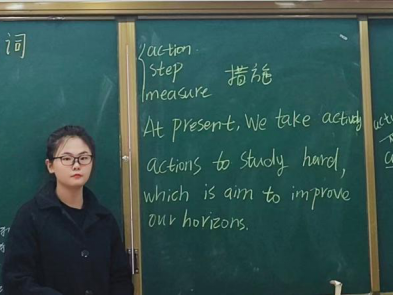 词
action
step
measure 措施
At present, We take activly
actions to study hard,
which is aim to improve
our horizons.